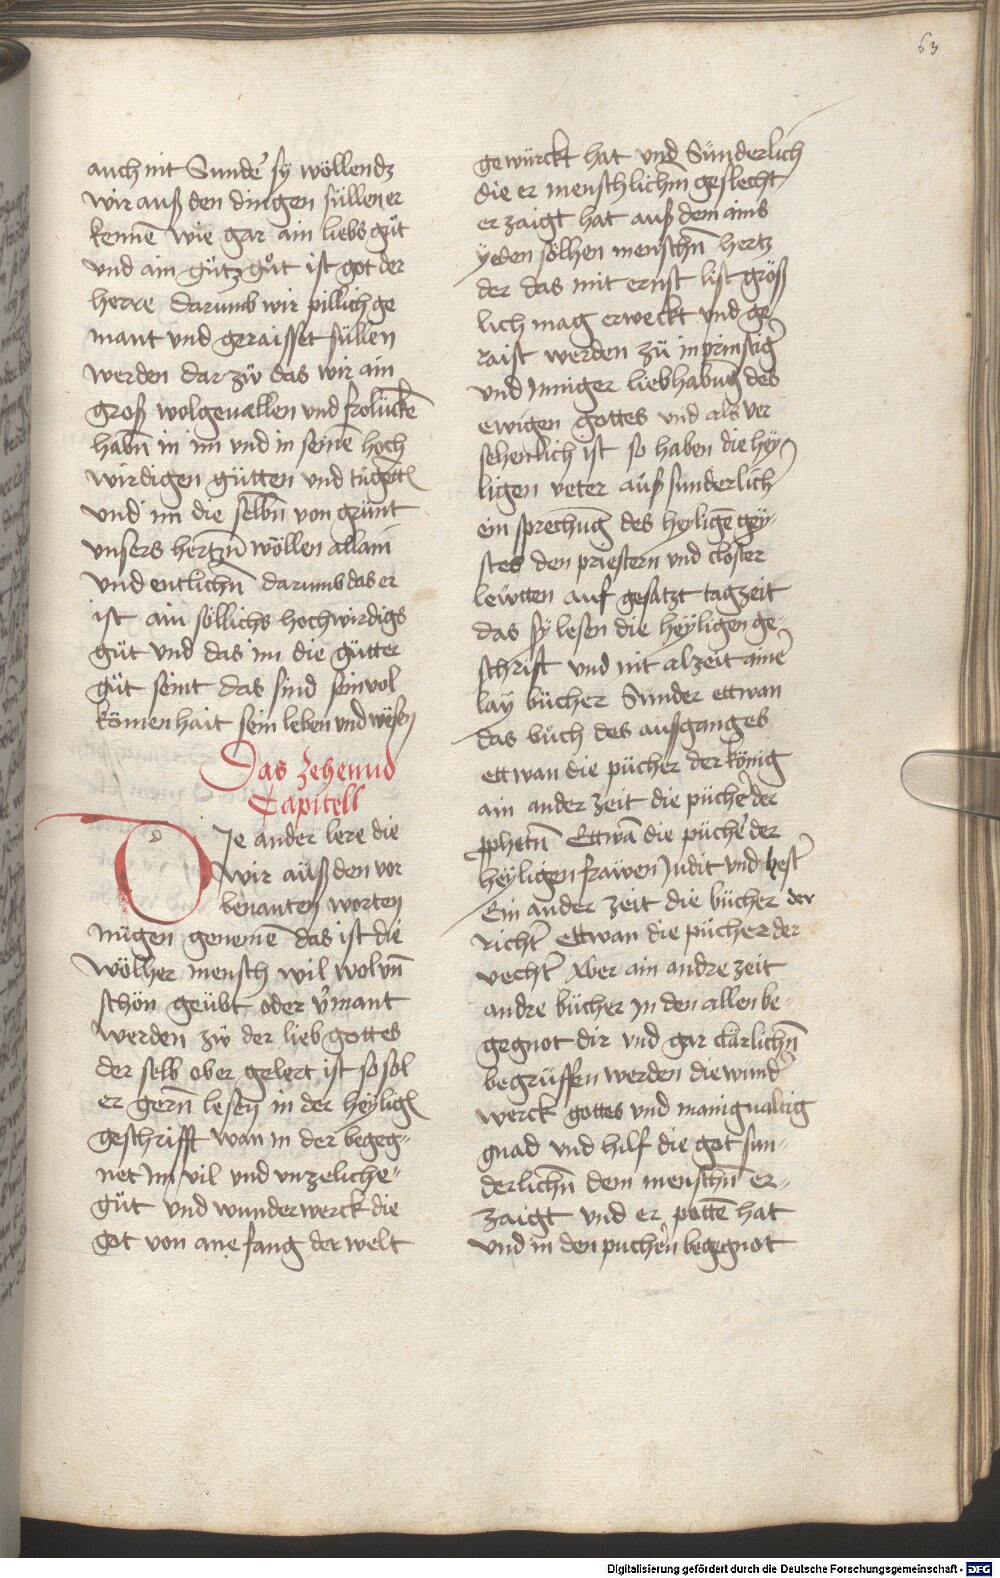 63
auch nit Sunde͛ sy wöllendz
wir auß den dingen süllen er
kennē wie gar ain liebs gůt
und ain gůtz gůt ist got der
herre darumb wir pillich ge
mant und geraisset süllen
werden dar zw̄ das wir ain
groß wolgeuallen und frolückē
habn̄ in im vnd in seinē hoch
wirdigen gütten und tugēt
und im die selbn̄ von grünt
vnsers hertzn̄ wöllen allain
und entlichn̄ darumb das er
ist ain söllichs hochwirdigs
gůt und das im die gütter
gůt seint das sind sein vol
kōmenhait sein leben und wesen
Das zehennd
Capitell
DJe ander lere die
wir auß den vor
benanten worten
mügen genemē das ist die
wölher mensch wil wol vn̄
schön geübt oder v͛mant
werden zw̄ der lieb gottes
der selb ober gelert ist so sol
er gern̄ lesen in der heylig
geschrifft wan in der begeg-
net Im vil und vnzeliche-
gůt und wunderwerck die
got von ane fang der welt
gewürckt hat vnd Sünderlich
die er menschlichm geslecht
erzaigt hat auß dem ains
yeden sölhen menschn̄ hertz
der das mit ernst list größ
lich mag erweckt vnd ge
raist werden zü inprinstig͛
und Inniger liebhabūg des
ewigen gottes und als ver
sehenlich ist so haben die hey
ligen veter auß sunderlich͛
ein sprechūg des heyligē gey-
stes den priestern und closter
lewtten auf gesatzt tagzeit
das sy lesen die heyligen ge-
schrift und nit alzeit aine͛
lay bücher Sunder ettwan
das büch des aussganges
ettwan die pücher der könig
ain ander zeit die püche͛ der
pphetn̄ Ettwā die püche͛ der
heyligen frawen Judit und hest͛
Ein ander zeit die bücher der
richt͛ ettwan die pücher der
vecht͛ Aber ain andre zeit
andre bücher In den allen be-
gegnot dir und gar clärlichn̄
begrüssen werden die wund͛
werck gottes und manigualtig
gnad und hilf die got sun-
derlichn̄ dem menschn̄ er-
zaigt und er pottē hat
und in den puchern begegnot
Digitalisierung gefördert durch die Deutsche Forschungsgemeinschaft - DFG